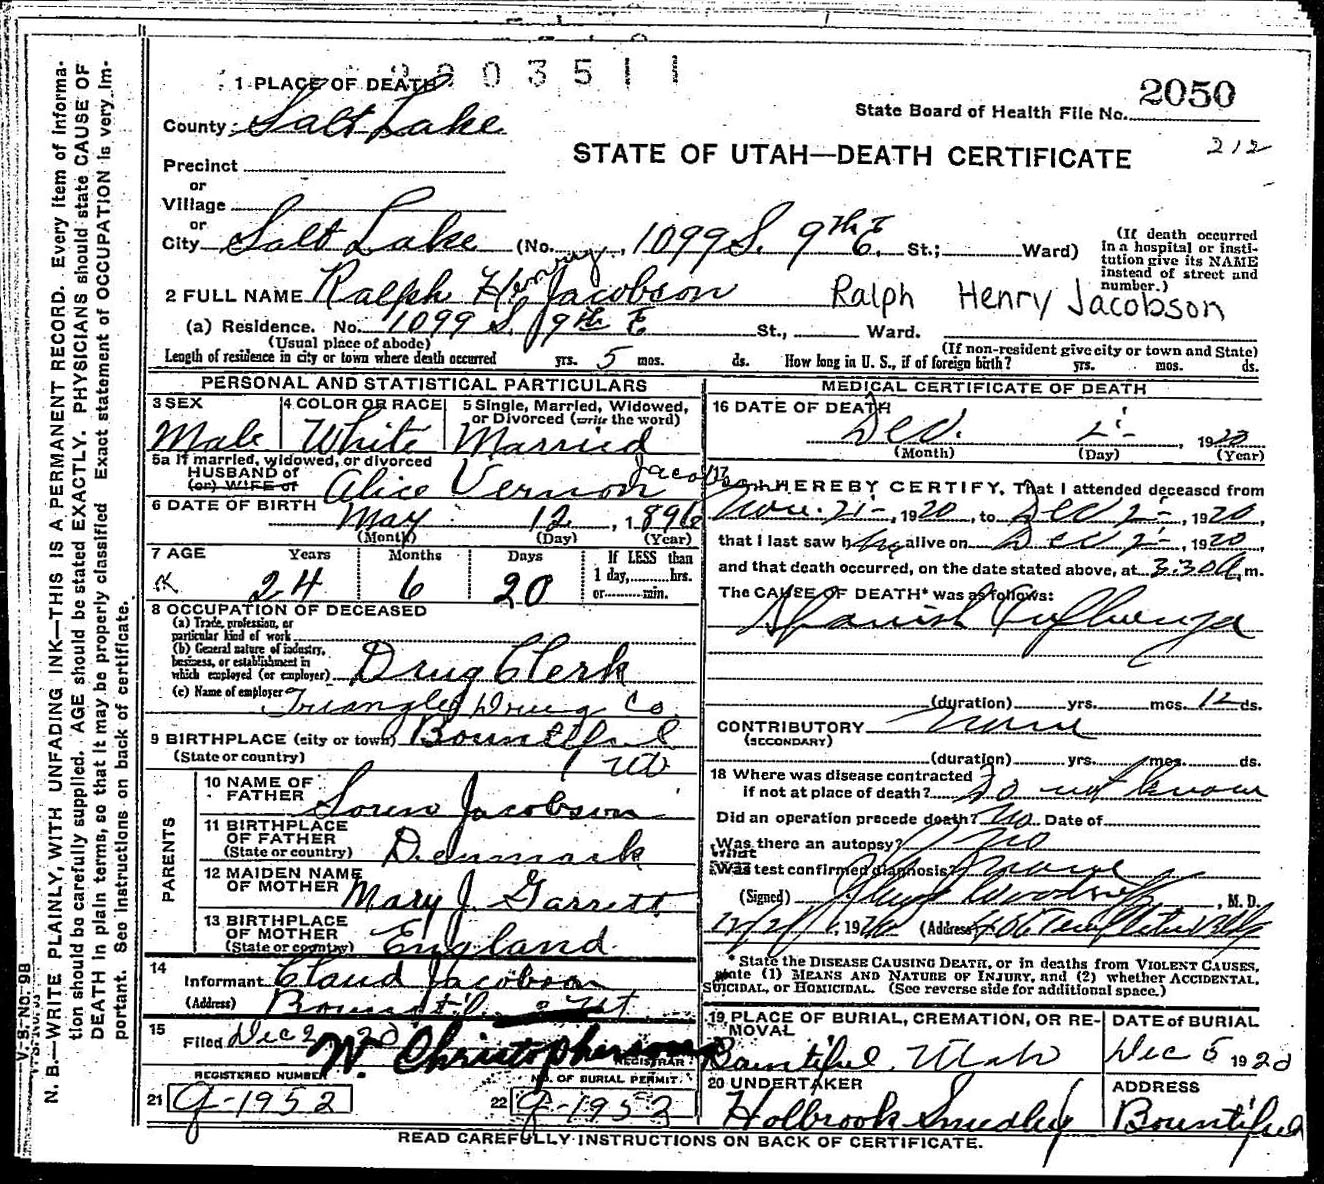 2003511
1 PLACE OF DEATH
2050
State Board of Health File No.
County Salt Lake
212
STATE OF UTAH—DEATH CERTIFICATE
Precinct
or
Village
or
City Salt Lake (No. 1099 S. 9th E. St.; Ward)
(If death occurred in a hospital or institution give its NAME instead of street and number.)
2 FULL NAME Ralph Henry Jacobson Ralph Henry Jacobson
(a) Residence. No. 1099 S. 9th E St., Ward.
(Usual place of abode) (If non-resident give city or town and State)
Length of residence in city or town where death occurred yrs. 5 mos. ds. How long in U. S., if of foreign birth? yrs. mos. ds.
PERSONAL AND STATISTICAL PARTICULARS
3 SEX Male
4 COLOR OR RACE White
5 Single, Married, Widowed, or Divorced (write the word) Married
5a If married, widowed, or divorced
HUSBAND of
(or) WIFE of Alice Vernon Jacobson
6 DATE OF BIRTH May 12, 1896
(Month) (Day) (Year)
7 AGE Years Months Days If LESS than
24 6 20 1 day, hrs.
or min.
8 OCCUPATION OF DECEASED
(a) Trade, profession, or
particular kind of work
(b) General nature of industry,
business, or establishment in
which employed (or employer) Drug Clerk
(c) Name of employer Triangle Drug Co.
9 BIRTHPLACE (city or town) Bountiful
(State or country)
PARENTS
10 NAME OF FATHER Soren Jacobson
11 BIRTHPLACE OF FATHER (State or country) Denmark
12 MAIDEN NAME OF MOTHER Mary J. Garrett
13 BIRTHPLACE OF MOTHER (State or country) England
14 Informant Claud Jacobson
(Address) Bountiful Ut
15 Filed Dec 2 20 W. Christopherson
REGISTRAR
REGISTERED NUMBER NO. OF BURIAL PERMIT
21 G-1952 22 G-1952
MEDICAL CERTIFICATE OF DEATH
16 DATE OF DEATH
Dec. 2, 1920
(Month) (Day) (Year)
17 I HEREBY CERTIFY, That I attended deceased from
Nov. 21, 1920, to Dec 2, 1920,
that I last saw him alive on Dec 2, 1920,
and that death occurred, on the date stated above, at 3:30 A.m.
The CAUSE OF DEATH* was as follows:
Spanish Influenza
(duration) yrs. mos. 12 ds.
CONTRIBUTORY None
(SECONDARY)
(duration) yrs. mos. ds.
18 Where was disease contracted
if not at place of death? Do not know
Did an operation precede death? No Date of
Was there an autopsy? No
What test confirmed diagnosis? None
(Signed) Woodruff, M. D.
12/2/, 1920 (Address) 406 Templeton Bldg
*State the DISEASE CAUSING DEATH, or in deaths from VIOLENT CAUSES,
state (1) MEANS AND NATURE OF INJURY, and (2) whether ACCIDENTAL,
SUICIDAL, or HOMICIDAL. (See reverse side for additional space.)
19 PLACE OF BURIAL, CREMATION, OR REMOVAL Bountiful Utah
DATE of BURIAL Dec 5 1920
20 UNDERTAKER Holbrook Smedley
ADDRESS Bountiful
READ CAREFULLY INSTRUCTIONS ON BACK OF CERTIFICATE.
V. S. No. 98
N. B.—WRITE PLAINLY, WITH UNFADING INK—THIS IS A PERMANENT RECORD. Every item of informa-
tion should be carefully supplied. AGE should be stated EXACTLY. PHYSICIANS should state CAUSE OF
DEATH in plain terms, so that it may be properly classified Exact statement of OCCUPATION is very im-
portant. See instructions on back of certificate.